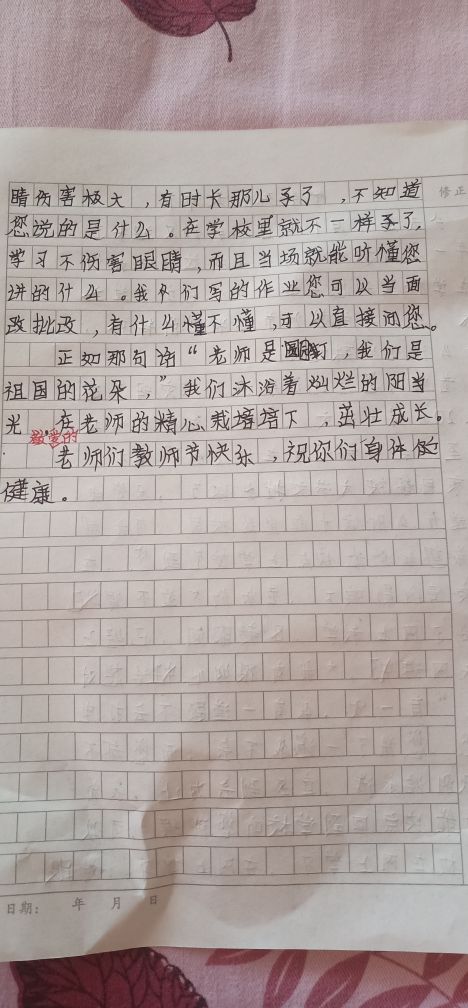 睛伤害极大，有时卡那儿了，不知道
修正
您说的是什么。在学校里就不一样了，
学习不伤害眼睛，而且当场就能听懂您
讲的什么。我们写的作业您可以当面
改批改，有什么懂不懂，可以直接问您。
正如那句话“老师是园丁，我们是
祖国的花朵，”我们沐浴着灿烂的阳当
光，在老师的精心栽培培下，茁壮成长。
敬爱的
老师们教师节快乐，祝你们身体
健康。
日期： 年 月 日